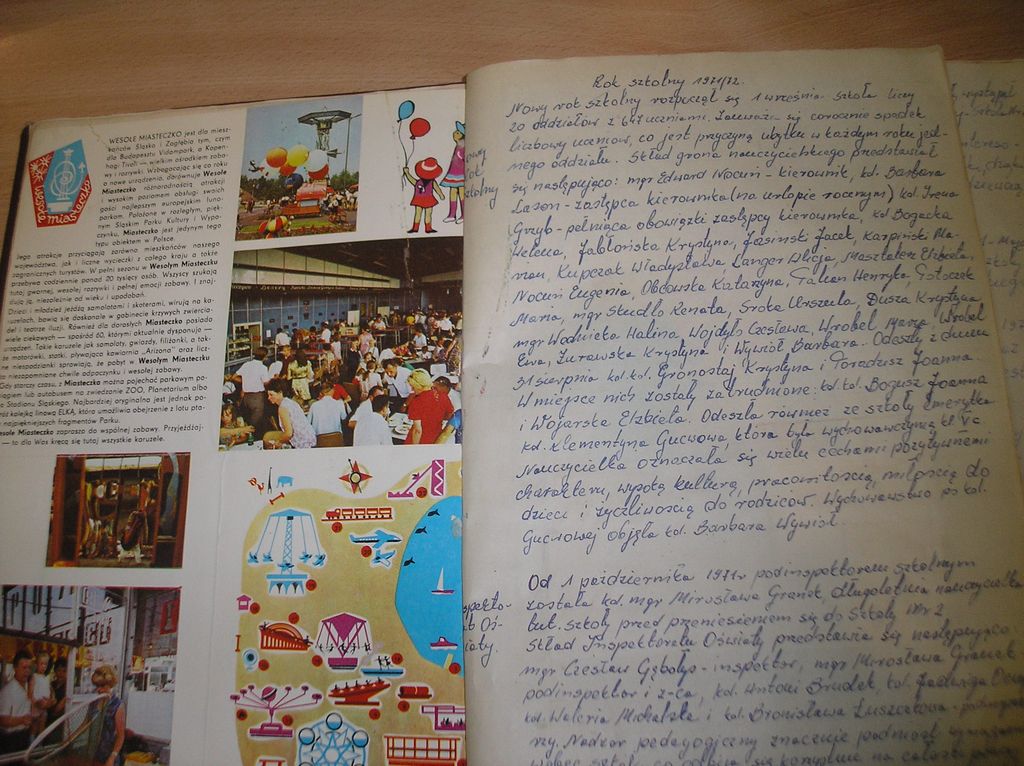 WESOŁE MIASTECZKO jest dla miesz-
kańców Śląska i Zagłębia tym, czym
dla Budapesztu Vidampark, a Kopen-
hagi Tivoli — wielkim ośrodkiem zabawy
i rozrywki. Wzbogacające się co roku
o nowe urządzenia, dorównuje Wesołe
Miasteczko różnorodnością atrakcji
i wysokim poziomem obsługi swoich
gości najlepszym europejskim luna-
parkom. Położone w rozległym, pięk-
nym Śląskim Parku Kultury i Wypo-
czynku, Miasteczko jest jedynym tego
typu obiektem w Polsce.
Jego atrakcje przyciągają zarówno mieszkańców naszego
województwa, jak i liczne wycieczki z całego kraju a także
zagranicznych turystów. W pełni sezonu w Wesołym Miasteczku
przebywa codziennie ponad 20 tysięcy osób. Wszyscy szukają
tutaj gwarnej, wesołej rozrywki i pełnej emocji zabawy. I znaj-
dują ją, niezależnie od wieku i upodobań.
Dzieci i młodzież jeżdżą samolotami i skuterami, wirują na ka-
ruzelach, bawią się doskonale w gabinecie krzywych zwiercia-
deł i teatrze iluzji. Również dla dorosłych Miasteczko posiada
wiele ciekawych — spośród 60, którymi aktualnie dysponuje —
urządzeń. Takie karuzele jak samoloty, gwiazdy, filiżanki, a tak-
że motorówki, statki, pływająca kawiarnia „Arizona" oraz licz-
ne niespodzianki sprawiają, że pobyt w Wesołym Miasteczku
niezapomniane chwile odpoczynku i wesołej zabawy.
Gdy starczy czasu, z Miasteczka można pojechać parkowym po-
ciągiem lub autobusem na zwiedzanie ZOO, Planetarium albo
Stadionu Śląskiego. Najbardziej oryginalna jest jednak po-
dróż kolejką linową ELKA, która umożliwia obejrzenie z lotu pta-
ka najpiękniejszych fragmentów Parku.
Wesołe Miasteczko zaprasza do wspólnej zabawy. Przyjeżdżaj-
— to dla Was kręcą się tutaj wszystkie karuzele.
wesołe
miasteczko
Rok szkolny 1971/72.
Nowy rok szkolny rozpoczął się 1 września. Szkoła liczy
20 oddziałów z 647 uczniami. Zauważa się corocznie spadek
liczbowy uczniów, co jest przyczyną ubytku w każdym roku jed-
nego oddziału. Skład grona nauczycielskiego przedstawiał
się następująco: mgr Edward Nocuń - kierownik, kol. Barbara
Lason - zastępca kierownika (na urlopie rocznym) kol. Irena
Grzyb - pełniąca obowiązki zastępcy kierownika, kol. Bogacka
Helena, Jabłońska Krystyna, Jasiński Jacek, Karpiński Ma-
rian, Kupczak Władysława, Langer Alicja, Masztaler Elżbieta,
Nocuń Eugenia, Obdowska Katarzyna, Talian Henryka, Potoczek
Maria, mgr Studlo Renata, Srota Urszula, Dusza Krystyna
mgr Wodnicka Halina, Wojdyło Czesława, Wrobel Maria, Wrobel
Ewa, Żurawska Krystyna i Wywioł Barbara. Odeszły z dniem
31 sierpnia kol. kol. Gronostaj Krystyna i Toradusz Joanna.
W miejsce nich zostały zatrudnione kol. kol. Bogusz Joanna
i Wojarska Elżbieta. Odeszła również ze szkoły emerytka
kol. Klementyna Gucwowa, która była wychowawczynią kl. V c.
Nauczycielka oznaczała się wielu cechami pozytywnemi
charakteru, wysoką kulturą, pracowitością, miłością do
dzieci i życzliwością do rodziców. Wychowawstwo po kol.
Gucwowej objęła kol. Barbara Wywioł.
Od 1 października 1971r podinspektorem szkolnym
została kol. mgr Mirosława Granek, długoletnia nauczycielka
tut. szkoły przed przeniesieniem się do Szkoły Nr 2
Skład Inspektoratu Oświaty przedstawia się następująco
mgr Czesław Gębołyś - inspektor, mgr Mirosława Granek
podinspektor i z-ca, kol. Antoni Brudek, kol. Jadwiga
kol. Waleria Michalska i kol. Bronisława Łuszczakowa -
rzy. Nadzór pedagogiczny znacznie podniósł